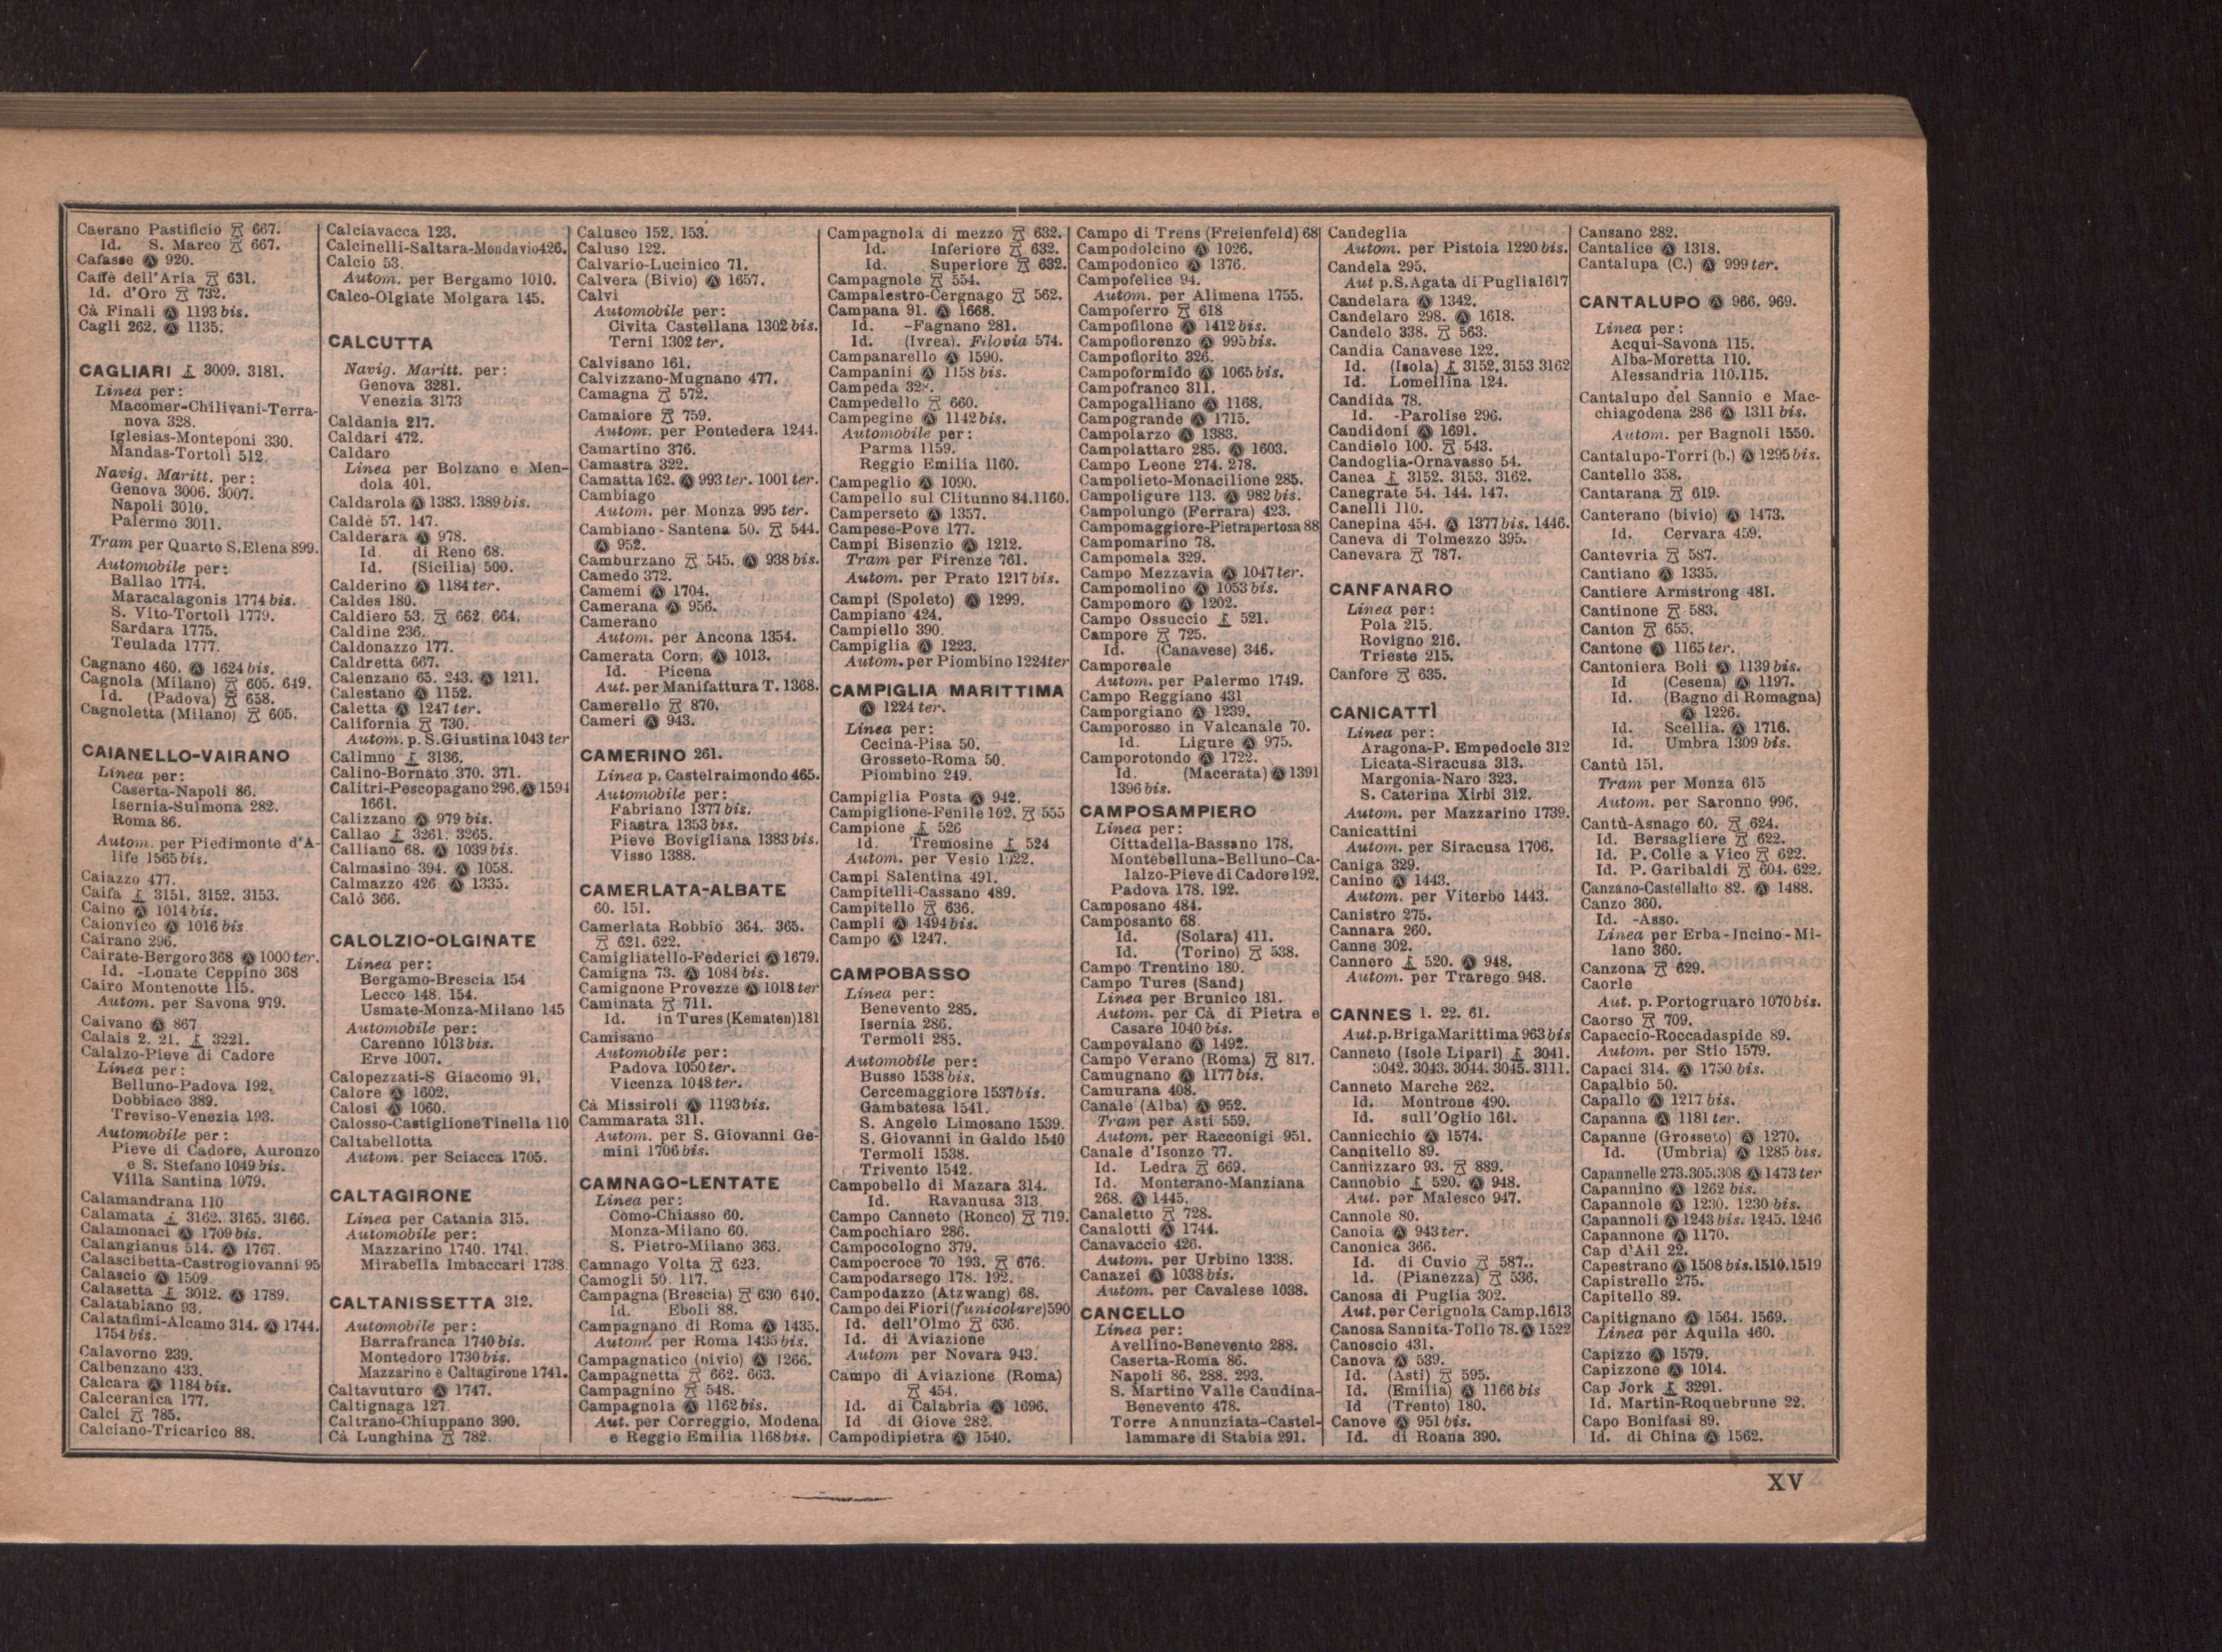 Caerano Pastificio 667.
Id. S. Marco 667.
Cafasse Ⓐ 920.
Caffè dell'Aria 631.
Id. d'Oro 732.
Cà Finali Ⓐ 1193 bis.
Cagli 262. Ⓐ 1135.
CAGLIARI 3009. 3181.
Linea per:
Macomer-Chilivani-Terra-
nova 328.
Iglesias-Monteponi 330.
Mandas-Tortolì 512.
Navig. Maritt. per:
Genova 3006. 3007.
Napoli 3010.
Palermo 3011.
Tram per Quarto S. Elena 899.
Automobile per:
Ballao 1774.
Maracalagonis 1774 bis.
S. Vito-Tortolì 1779.
Sardara 1775.
Teulada 1777.
Cagnano 460. Ⓐ 1624 bis.
Cagnola (Milano) 605. 649.
Id. (Padova) 658.
Cagnoletta (Milano) 605.
CAIANELLO-VAIRANO
Linea per:
Caserta-Napoli 86.
Isernia-Sulmona 282.
Roma 86.
Autom. per Piedimonte d'A-
life 1565 bis.
Caiazzo 477.
Caifa 3151. 3152. 3153.
Caino Ⓐ 1014 bis.
Caionvico Ⓐ 1016 bis
Cairano 296.
Cairate-Bergoro 368 Ⓐ 1000 ter.
Id. -Lonate Ceppino 368
Cairo Montenotte 115.
Autom. per Savona 979.
Caivano Ⓐ 867
Calais 2. 21. 3221.
Calalzo-Pieve di Cadore
Linea per:
Belluno-Padova 192.
Dobbiaco 389.
Treviso-Venezia 193.
Automobile per:
Pieve di Cadore, Auronzo
e S. Stefano 1049 bis.
Villa Santina 1079.
Calamandrana 110
Calamata 3162. 3165. 3166.
Calamonaci Ⓐ 1709 bis.
Calangianus 514. Ⓐ 1767.
Calascibetta-Castrogiovanni 95
Calascio Ⓐ 1509
Calasetta 3012. Ⓐ 1789.
Calatabiano 93.
Calatafimi-Alcamo 314. Ⓐ 1744.
1754 bis.
Calavorno 239.
Calbenzano 433.
Calcara Ⓐ 1184 bis.
Calceranica 177.
Calci 785.
Calciano-Tricarico 88.
Calciavacca 123.
Calcinelli-Saltara-Mondavio 426.
Calcio 53.
Autom. per Bergamo 1010.
Calco-Olgiate Molgara 145.
CALCUTTA
Navig. Maritt. per:
Genova 3281.
Venezia 3173
Caldania 217.
Caldari 472.
Caldaro
Linea per Bolzano e Men-
dola 401.
Caldarola Ⓐ 1383. 1389 bis.
Caldè 57. 147.
Calderara Ⓐ 978.
Id. di Reno 68.
Id. (Sicilia) 500.
Calderino Ⓐ 1184 ter.
Caldes 180.
Caldiero 53. 662 664.
Caldine 236.
Caldonazzo 177.
Caldretta 667.
Calenzano 65. 243. Ⓐ 1211.
Calestano Ⓐ 1152.
Caletta Ⓐ 1247 ter.
California 730.
Autom. p. S. Giustina 1043 ter
Calimno 3136.
Calino-Bornato 370. 371.
Calitri-Pescopagano 296. Ⓐ 1594
1661.
Calizzano Ⓐ 979 bis.
Callao 3261. 3265.
Calliano 68. Ⓐ 1039 bis.
Calmasino 394. Ⓐ 1058.
Calmazzo 426 Ⓐ 1335.
Calò 366.
CALOLZIO-OLGINATE
Linea per:
Bergamo-Brescia 154
Lecco 148. 154.
Usmate-Monza-Milano 145
Automobile per:
Carenno 1013 bis.
Erve 1007.
Calopezzati-S Giacomo 91.
Calore Ⓐ 1602.
Calosi Ⓐ 1060.
Calosso-Castiglione Tinella 110
Caltabellotta
Autom. per Sciacca 1705.
CALTAGIRONE
Linea per Catania 315.
Automobile per:
Mazzarino 1740. 1741.
Mirabella Imbaccari 1738
CALTANISSETTA 312.
Automobile per:
Barrafranca 1740 bis.
Montedoro 1730 bis.
Mazzarino e Caltagirone 1741.
Caltavuturo Ⓐ 1747.
Caltignaga 127
Caltrano-Chiuppano 390.
Cà Lunghina 782.
Calusco 152. 153.
Caluso 122.
Calvario-Lucinico 71.
Calvera (Bivio) Ⓐ 1657.
Calvi
Automobile per:
Civita Castellana 1302 bis.
Terni 1302 ter.
Calvisano 161.
Calvizzano-Mugnano 477.
Camagna 572.
Camaiore 759.
Autom. per Pontedera 1244.
Camartino 376.
Camastra 322.
Camatta 162. Ⓐ 993 ter. 1001 ter.
Cambiago
Autom. per Monza 995 ter.
Cambiano-Santena 50. 544.
Ⓐ 952.
Camburzano 545. Ⓐ 938 bis.
Camedo 372.
Camemi Ⓐ 1704.
Camerana Ⓐ 956.
Camerano
Autom. per Ancona 1354.
Camerata Corn. Ⓐ 1013.
Id. Picena
Aut. per Manifattura T. 1368.
Camerello 870.
Cameri Ⓐ 943.
CAMERINO 261.
Linea p. Castelraimondo 465.
Automobile per:
Fabriano 1377 bis.
Fiastra 1353 bis.
Pieve Bovigliana 1383 bis.
Visso 1388.
CAMERLATA-ALBATE
60. 151.
Camerlata Robbio 364. 365.
621. 622.
Camigliatello-Federici Ⓐ 1679.
Camigna 73. Ⓐ 1084 bis.
Camignone Provezze Ⓐ 1018 ter
Caminata 711.
Id. in Tures (Kematen) 181
Camisano
Automobile per:
Padova 1050 ter.
Vicenza 1048 ter.
Cà Missiroli Ⓐ 1193 bis.
Cammarata 311.
Autom. per S. Giovanni Ge-
mini 1706 bis.
CAMNAGO-LENTATE
Linea per:
Como-Chiasso 60.
Monza-Milano 60.
S. Pietro-Milano 363.
Camnago Volta 623.
Camogli 50. 117.
Campagna (Brescia) 630 640.
Id. Eboli 88.
Campagnano di Roma Ⓐ 1435.
Autom. per Roma 1435 bis.
Campagnatico (bivio) Ⓐ 1266.
Campagnetta 662. 663.
Campagnino 548.
Campagnola Ⓐ 1162 bis.
Aut. per Correggio, Modena
e Reggio Emilia 1168 bis.
Campagnola di mezzo 632.
Id. Inferiore 632.
Id. Superiore 632.
Campagnole 554.
Campalestro-Cergnago 562.
Campana 91. Ⓐ 1668.
Id. -Fagnano 281.
Id. (Ivrea). Filovia 574.
Campanarello Ⓐ 1590.
Campanini Ⓐ 1158 bis.
Campeda
Campedello 660.
Campegine Ⓐ 1142 bis.
Automobile per:
Parma 1159.
Reggio Emilia 1160.
Campeglio Ⓐ 1090.
Campello sul Clitunno 84. 1160.
Camperseto Ⓐ 1357.
Campese-Pove 177.
Campi Bisenzio Ⓐ 1212.
Tram per Firenze 761.
Autom. per Prato 1217 bis.
Campi (Spoleto) Ⓐ 1299.
Campiano 424.
Campiello 390.
Campiglia Ⓐ 1223.
Autom. per Piombino 1224 ter
CAMPIGLIA MARITTIMA
Ⓐ 1224 ter.
Linea per:
Cecina-Pisa 50.
Grosseto-Roma 50.
Piombino 249.
Campiglia Posta Ⓐ 942.
Campiglione-Fenile 102. 555
Campione 526
Id. Tremosine 524
Autom. per Vesio 1022.
Campi Salentina 491.
Campitelli-Cassano 489.
Campitello 636.
Campli Ⓐ 1494 bis.
Campo Ⓐ 1247.
CAMPOBASSO
Linea per:
Benevento 285.
Isernia 286.
Termoli 285.
Automobile per:
Busso 1538 bis.
Cercemaggiore 1537 bis.
Gambatesa 1541.
S. Angelo Limosano 1539.
S. Giovanni in Galdo 1540
Termoli 1538.
Trivento 1542.
Campobello di Mazara 314.
Id. Ravanusa 313.
Campo Canneto (Ronco) 719.
Campochiaro 286.
Campocologno 379.
Campocroce 70 193. 676.
Campodarsego 178. 192.
Campodazzo (Atzwang) 68.
Campo dei Fiori (funicolare) 590
Id. dell'Olmo 636.
Id. di Aviazione
Autom per Novara 943.
Campo di Aviazione (Roma)
454.
Id. di Calabria Ⓐ 1696.
Id di Giove 282.
Campodipietra Ⓐ 1540.
Campo di Trens (Freienfeld) 68
Campodolcino Ⓐ 1026.
Campodonico Ⓐ 1376.
Campofelice 94.
Autom. per Alimena 1755.
Campoferro 618
Campofilone Ⓐ 1412 bis.
Campoflorenzo Ⓐ 995 bis.
Campofiorito 326.
Campoformido Ⓐ 1065 bis.
Campofranco 311.
Campogalliano Ⓐ 1168.
Campogrande Ⓐ 1715.
Campolarzo Ⓐ 1383.
Campolattaro 285. Ⓐ 1603.
Campo Leone 274. 278.
Campolieto-Monacilione 285.
Campoligure 113. Ⓐ 982 bis.
Campolungo (Ferrara) 423.
Campomaggiore-Pietrapertosa 88
Campomarino 78.
Campomela 329.
Campo Mezzavia Ⓐ 1047 ter.
Campomolino Ⓐ 1053 bis.
Campomoro Ⓐ 1202.
Campo Ossuccio 521.
Campore 725.
Id. (Canavese) 346.
Camporeale
Autom. per Palermo 1749.
Campo Reggiano 431
Camporgiano Ⓐ 1239.
Camporosso in Valcanale 70.
Id. Ligure Ⓐ 975.
Camporotondo Ⓐ 1722.
Id. (Macerata) Ⓐ 1391
1396 bis.
CAMPOSAMPIERO
Linea per:
Cittadella-Bassano 178.
Montebelluna-Belluno-Ca-
lalzo-Pieve di Cadore 192.
Padova 178. 192.
Camposano 484.
Camposanto 68.
Id. (Solara) 411.
Id. (Torino) 538.
Campo Trentino 180.
Campo Tures (Sand)
Linea per Brunico 181.
Autom. per Cà di Pietra e
Casare 1040 bis.
Campovalano Ⓐ 1492.
Campo Verano (Roma) 817.
Camugnano Ⓐ 1177 bis.
Camurana 408.
Canale (Alba) Ⓐ 952.
Tram per Asti 559.
Autom. per Racconigi 951.
Canale d'Isonzo 77.
Id. Ledra 669.
Id. Monterano-Manziana
268. Ⓐ 1445.
Canaletto 728.
Canalotti Ⓐ 1744.
Canavaccio 426.
Autom. per Urbino 1338.
Canazei Ⓐ 1038 bis.
Autom. per Cavalese 1038.
CANCELLO
Linea per:
Avellino-Benevento 288.
Caserta-Roma 86.
Napoli 86. 288. 293.
S. Martino Valle Caudina-
Benevento 478.
Torre Annunziata-Castel-
lammare di Stabia 291.
Candeglia
Autom. per Pistoia 1220 bis.
Candela 295.
Aut p. S. Agata di Puglia 1617
Candelara Ⓐ 1342.
Candelaro 298. Ⓐ 1618.
Candelo 338. 563.
Candia Canavese 122.
Id. (Isola) 3152. 3153 3162
Id. Lomellina 124.
Candida 78.
Id. -Parolise 296.
Candidoni Ⓐ 1691.
Candiolo 100. 543.
Candoglia-Ornavasso 54.
Canea 3152. 3153. 3162.
Canegrate 54. 144. 147.
Canelli 110.
Canepina 454. Ⓐ 1377 bis. 1446.
Caneva di Tolmezzo 395.
Canevara 787.
CANFANARO
Linea per:
Pola 215.
Rovigno 216.
Trieste 215.
Canfore 635.
CANICATTÌ
Linea per:
Aragona-P. Empedocle 312
Licata-Siracusa 313.
Margonia-Naro 323.
S. Caterina Xirbi 312.
Autom. per Mazzarino 1739.
Canicattini
Autom. per Siracusa 1706.
Caniga 329.
Canino Ⓐ 1443.
Autom. per Viterbo 1443.
Canistro 275.
Cannara 260.
Canne 302.
Cannero 520. Ⓐ 948.
Autom. per Trarego 948.
CANNES 1. 22. 61.
Aut. p. Briga Marittima 963 bis
Canneto (Isole Lipari) 3041.
3042. 3043. 3044. 3045. 3111.
Canneto Marche 262.
Id. Montrone 490.
Id. sull'Oglio 161.
Cannicchio Ⓐ 1574.
Cannitello 89.
Cannizzaro 93. 889.
Cannobio 520. Ⓐ 948.
Aut. per Malesco 947.
Cannole 80.
Canoia Ⓐ 943 ter.
Canonica 366.
Id. di Cuvio 587..
Id. (Pianezza) 536.
Canosa di Puglia 302.
Aut. per Cerignola Camp. 1613
Canosa Sannita-Tollo 78. Ⓐ 1522
Canoscio 431.
Canova Ⓐ 539.
Id. (Asti) 595.
Id. (Emilia) Ⓐ 1166 bis
Id (Trento) 180.
Canove Ⓐ 951 bis.
Id. di Roana 390.
Cansano 282.
Cantalice Ⓐ 1318.
Cantalupa (C.) Ⓐ 999 ter.
CANTALUPO Ⓐ 966. 969.
Linea per:
Acqui-Savona 115.
Alba-Moretta 110.
Alessandria 110.115.
Cantalupo del Sannio e Mac-
chiagodena 286 Ⓐ 1311 bis.
Autom. per Bagnoli 1550.
Cantalupo-Torri (b.) Ⓐ 1295 bis.
Cantello 358.
Cantarana 619.
Canterano (bivio) Ⓐ 1473.
Id. Cervara 459.
Cantevria 587.
Cantiano Ⓐ 1335.
Cantiere Armstrong 481.
Cantinone 583.
Canton 655.
Cantone Ⓐ 1165 ter.
Cantoniera Boli Ⓐ 1139 bis.
Id (Cesena) Ⓐ 1197.
Id. (Bagno di Romagna)
Ⓐ 1226.
Id. Scellia. Ⓐ 1716.
Id. Umbra 1309 bis.
Cantù 151.
Tram per Monza 615
Autom. per Saronno 996.
Cantù-Asnago 60. 624.
Id. Bersagliere 622.
Id. P. Colle a Vico 622.
Id. P. Garibaldi 604. 622.
Canzano-Castellalto 82. Ⓐ 1488.
Canzo 360.
Id. -Asso.
Linea per Erba-Incino-Mi-
lano 360.
Canzona 629.
Caorle
Aut. p. Portogruaro 1070 bis.
Caorso 709.
Capaccio-Roccadaspide 89.
Autom. per Stio 1579.
Capaci 314. Ⓐ 1750 bis.
Capalbio 50.
Capallo Ⓐ 1217 bis.
Capanna Ⓐ 1181 ter.
Capanne (Grosseto) Ⓐ 1270.
Id. (Umbria) Ⓐ 1285 bis.
Capannelle 273.305.308 Ⓐ 1473 ter
Capannino Ⓐ 1262 bis.
Capannole Ⓐ 1230. 1230 bis.
Capannoli Ⓐ 1243 bis. 1245. 1246
Capannone Ⓐ 1170.
Cap d'Ail 22.
Capestrano Ⓐ 1508 bis. 1510. 1519
Capistrello 275.
Capitello 89.
Capitignano Ⓐ 1564. 1569.
Linea per Aquila 460.
Capizzo Ⓐ 1579.
Capizzone Ⓐ 1014.
Cap Jork 3291.
Id. Martin-Roquebrune 22.
Capo Bonifasi 89.
Id. di China Ⓐ 1562.
XV